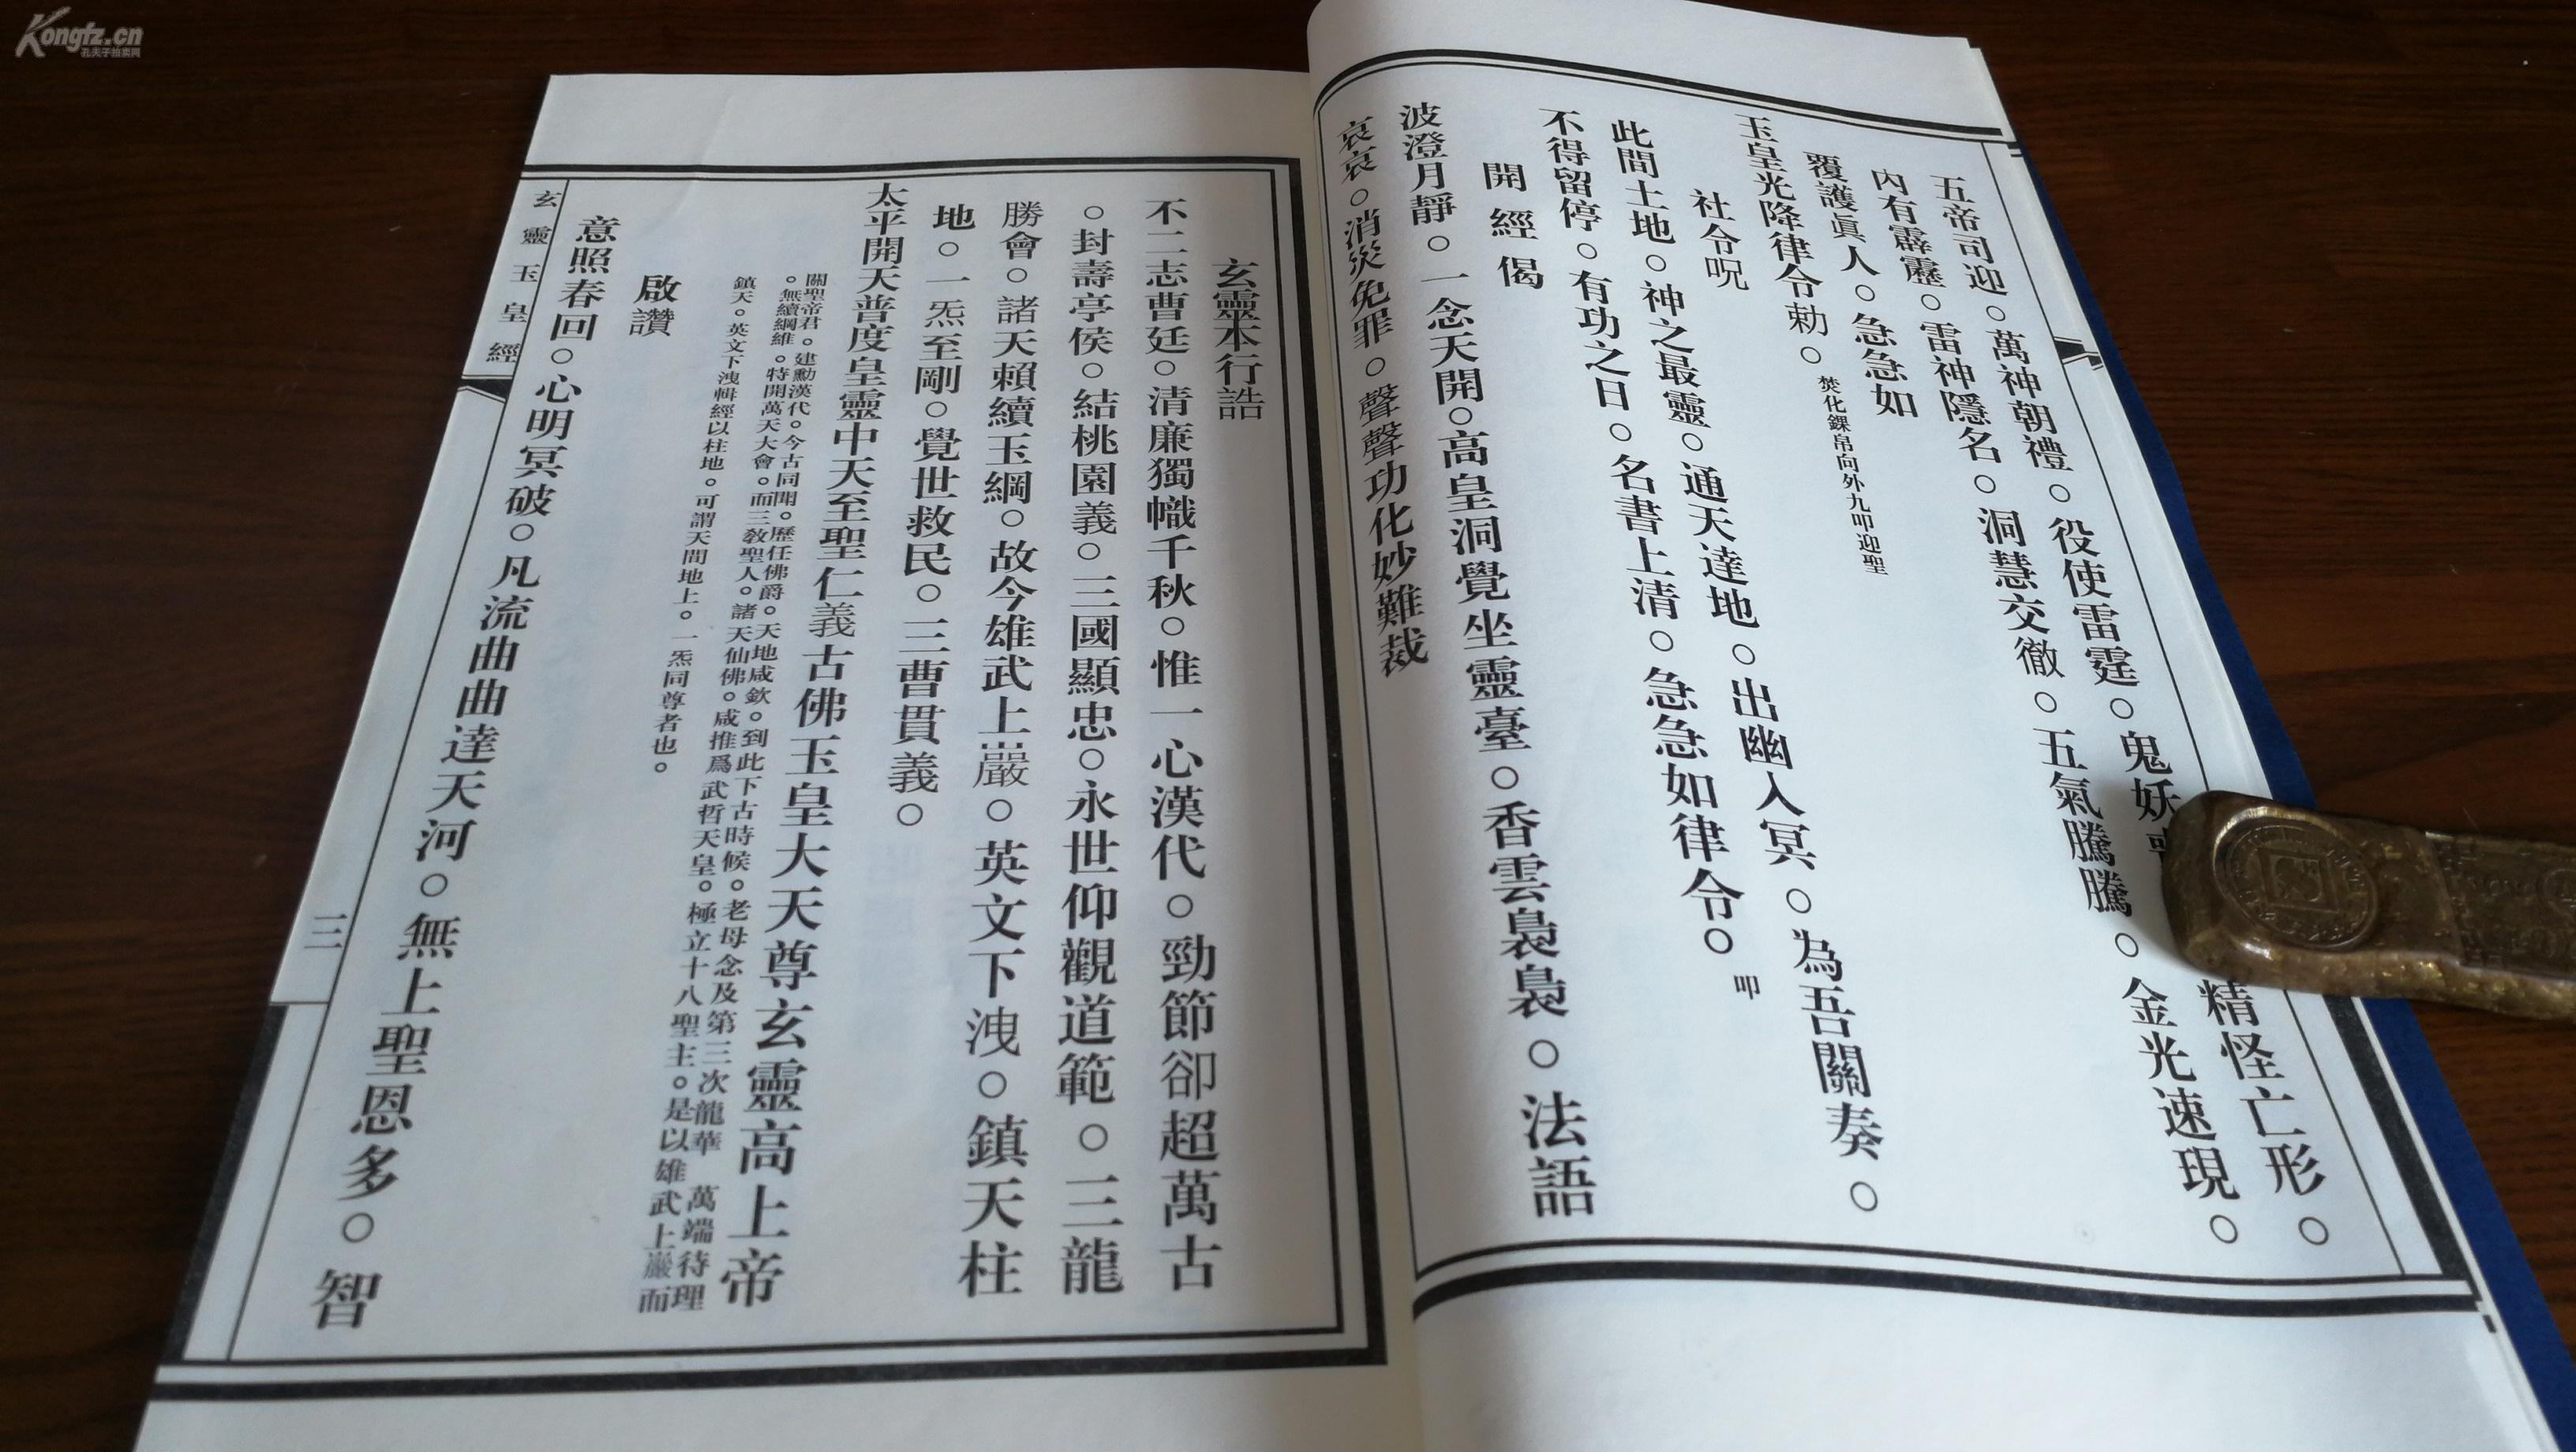 Kongfz.cn
孔夫子拍卖网
五帝司迎○萬神朝禮○役使雷霆○鬼妖 精怪亡形○
內有霹靂○雷神隱名○洞慧交徹○五氣騰騰○金光速現○
覆護眞人○急急如
玉皇光降律令勅○焚化錁帛向外九叩迎聖
社令呪
此間土地○神之最靈○通天達地○出幽入冥○為吾關奏○
不得留停○有功之日○名書上清○急急如律令○ 叩
開經偈
波澄月靜○一念天開○高皇洞覺坐靈臺○香雲裊裊○法語
哀哀○消災免罪○聲聲功化妙難裁
玄靈本行誥
不二志曹廷○清廉獨幟千秋○惟一心漢代○勁節卻超萬古
○封壽亭侯○結桃園義○三國顯忠○永世仰觀道範○三龍
勝會○諸天賴續玉綱○故今雄武上巖○英文下洩○鎮天柱
地○一炁至剛○覺世救民○三曹貫義○
太平開天普度皇靈中天至聖仁義古佛玉皇大天尊玄靈高上帝
關聖帝君。建勳漢代。今古同聞。歷任佛爵。天地咸欽。到此下古時候。老母念及第三次龍華 萬端待理
。無續綱維。特開萬天大會。而三教聖人。諸天仙佛。咸推爲武哲天皇。極立十八聖主。是以雄武上巖而
鎮天。英文下洩輯經以柱地。可謂天間地上。一炁同尊者也。
啟讚
意照春回○心明冥破○凡流曲曲達天河○無上聖恩多○智
玄靈玉皇經
三